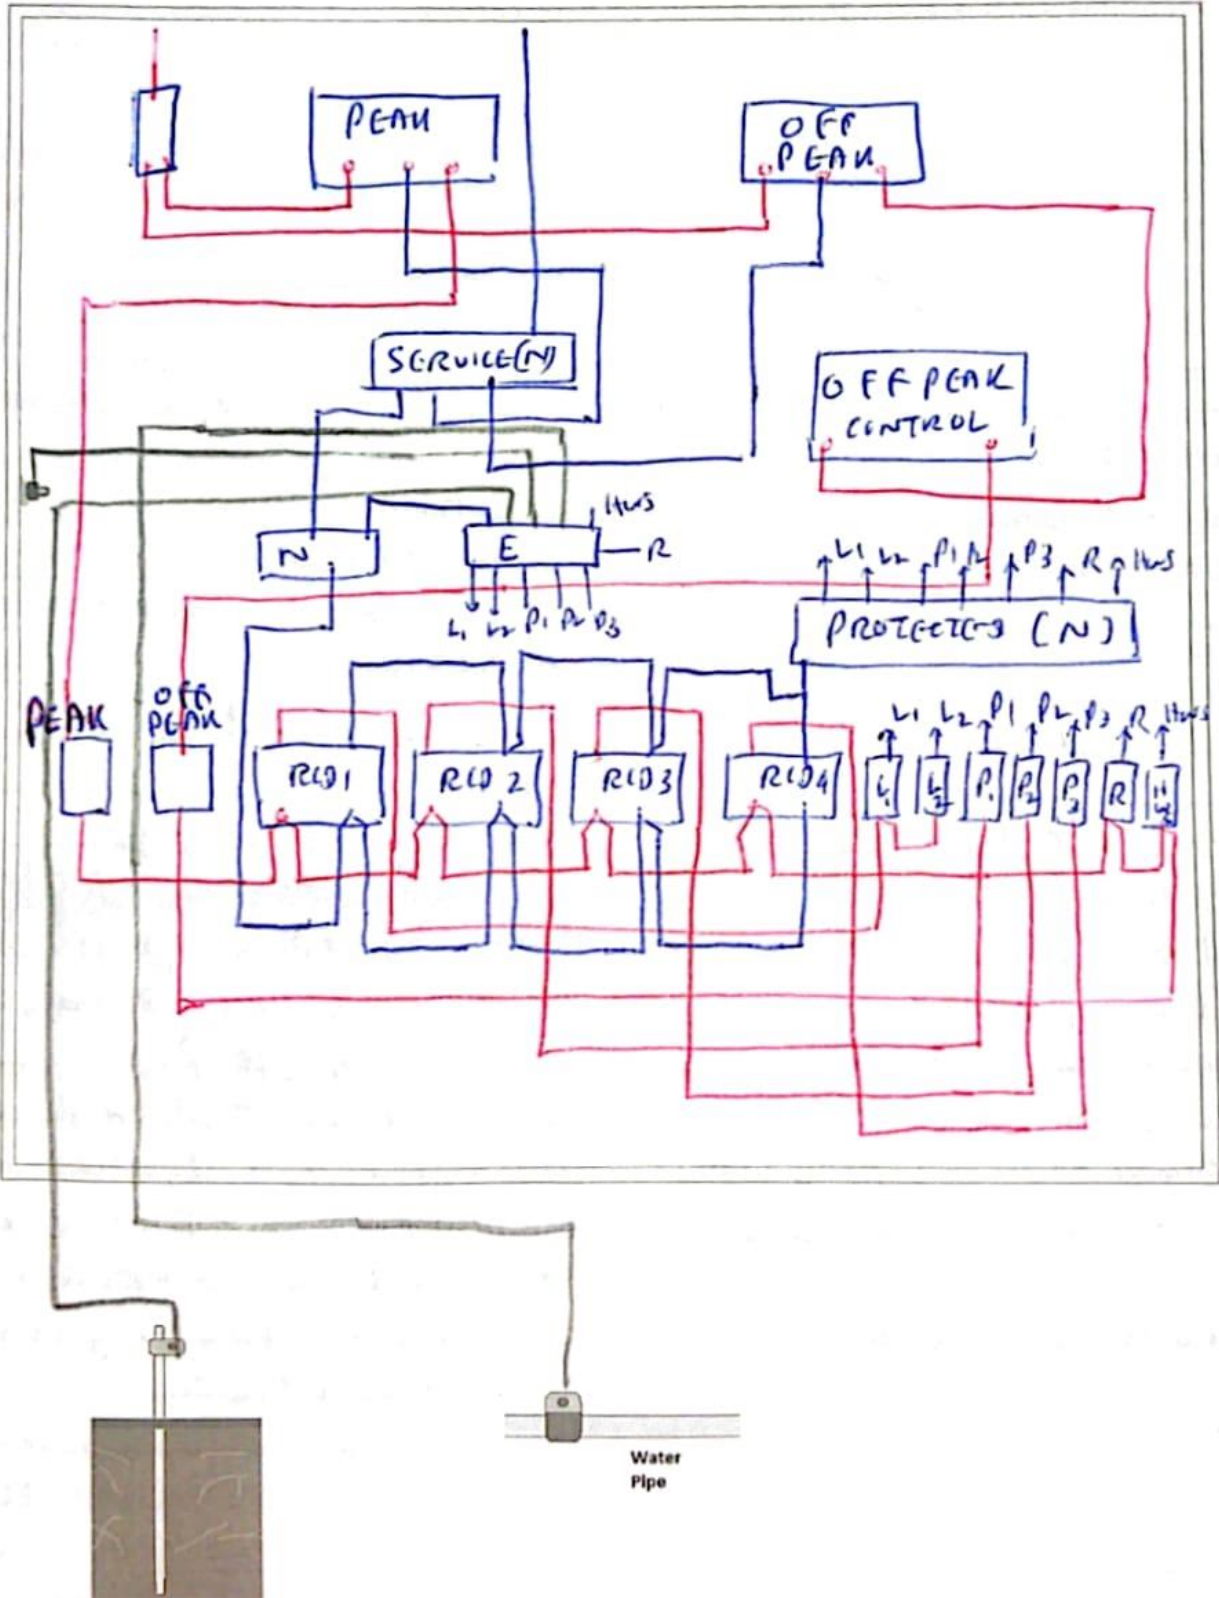 PEAK
OFF
PEAK
SERVICE(N)
OFF PEAK
CONTROL
N
E
Hws
R
L1 L2 P1 P2 P3
L1 L2 P1 P2 P3 R Hws
PROTECTED (N)
PEAK
OFF
PEAK
RCD1
RCD2
RCD3
RCD4
L1 L2 P1 P2 P3 R Hws
L1
L2
P1
P2
P3
R
Water
Pipe